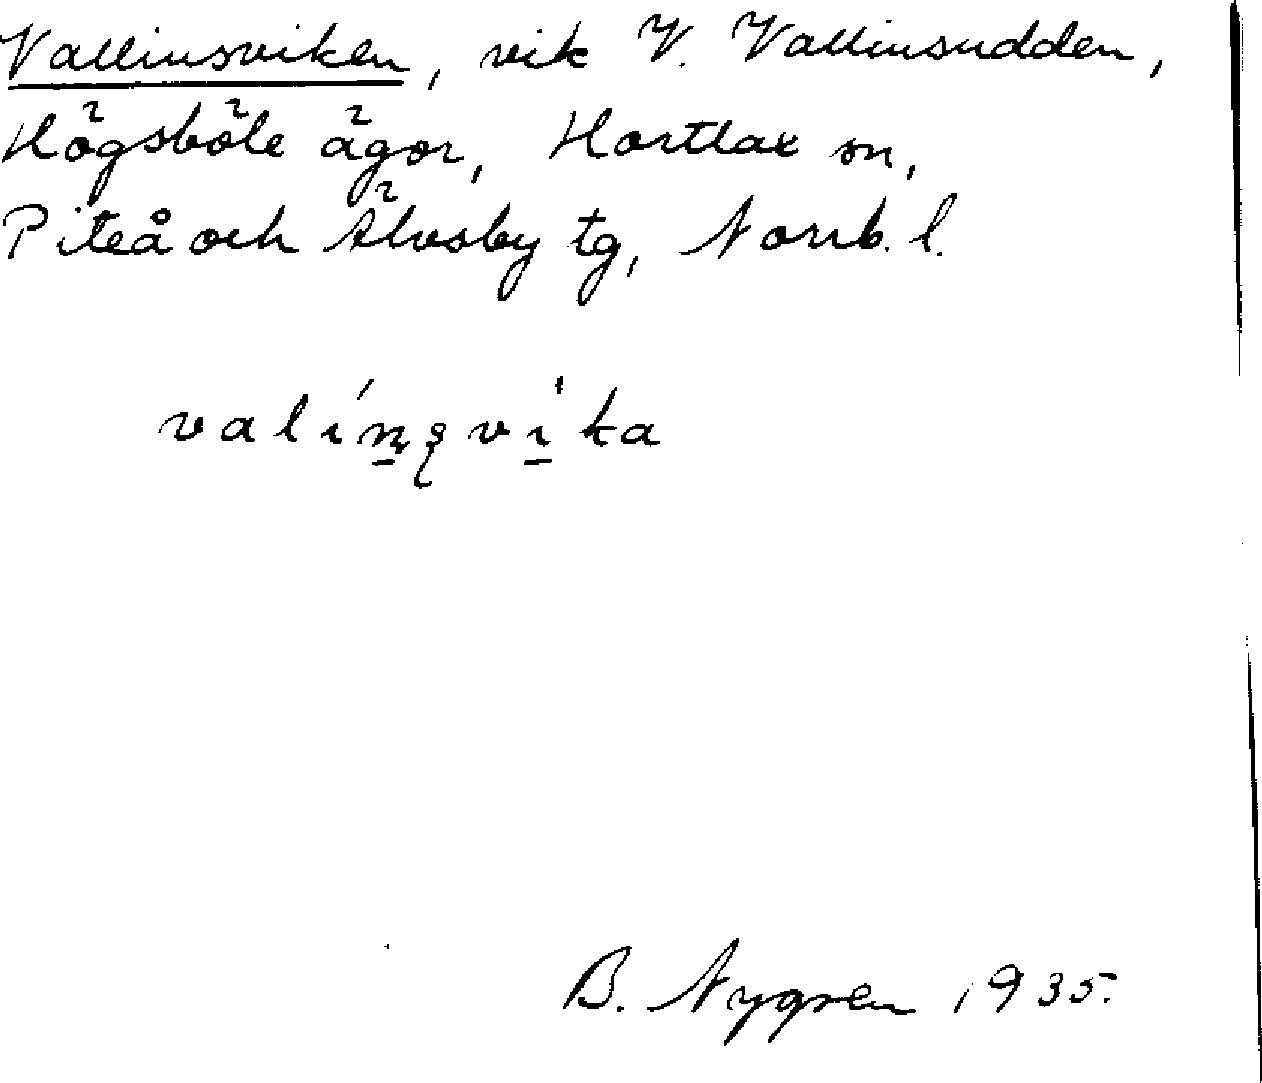 Vallinsviken, vik V. Vallinsudden,
Högsböle ägor, Hortlax sn,
Piteå och Älvsby tg, Norrb. l.
valínsvika
B. Nygren 1935.